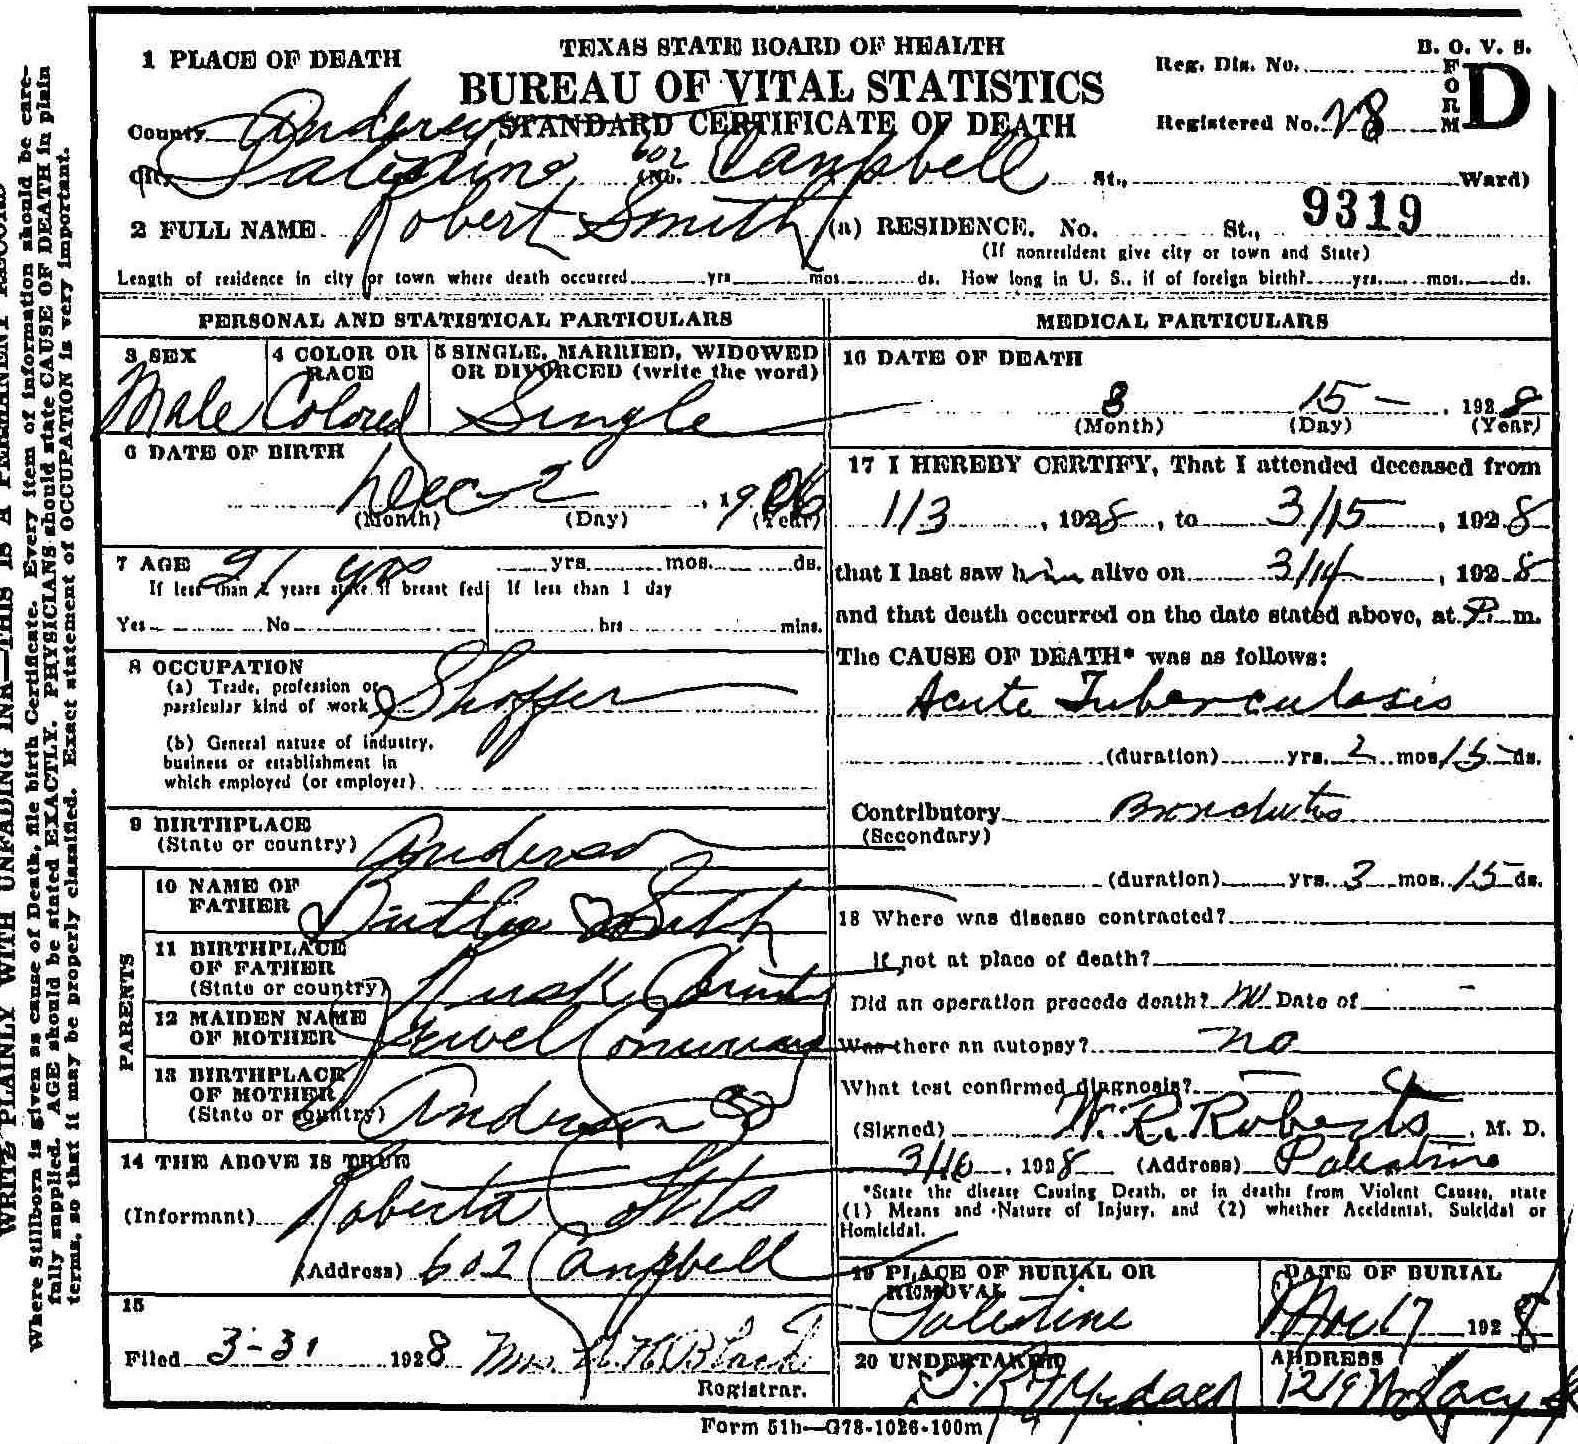 TEXAS STATE BOARD OF HEALTH
BUREAU OF VITAL STATISTICS
STANDARD CERTIFICATE OF DEATH
B. O. V. S.
FORM D
Reg. Dis. No.
Registered No. 28
1 PLACE OF DEATH
County Anderson
City Palestine (No. 602 Campbell St., Ward)
9319
2 FULL NAME Robert Smith (a) RESIDENCE. No. St.,
(If nonresident give city or town and State)
Length of residence in city or town where death occurred yrs mos. ds. How long in U. S., if of foreign birth? yrs. mos. ds.
PERSONAL AND STATISTICAL PARTICULARS
3 SEX
Male
4 COLOR OR RACE
Colored
5 SINGLE, MARRIED, WIDOWED
OR DIVORCED (write the word)
Single
6 DATE OF BIRTH
Dec 2, 1906
(Month) (Day) (Year)
7 AGE 21 yrs yrs. mos. ds.
If less than 2 years state if breast fed
Yes No
If less than 1 day
hrs mins.
8 OCCUPATION
(a) Trade, profession or
particular kind of work Shoffer
(b) General nature of industry,
business or establishment in
which employed (or employer)
9 BIRTHPLACE
(State or country) Anderson
PARENTS
10 NAME OF
FATHER Butler Smith
11 BIRTHPLACE
OF FATHER
(State or country) Rusk County
12 MAIDEN NAME
OF MOTHER Jewel
13 BIRTHPLACE
OF MOTHER
(State or country) Anderson Co
14 THE ABOVE IS TRUE
(Informant) Roberta
(Address) 602 Campbell
15
Filed 3-31 1928 Mrs. Black
Registrar.
MEDICAL PARTICULARS
16 DATE OF DEATH
3 15 – , 1928
(Month) (Day) (Year)
17 I HEREBY CERTIFY, That I attended deceased from
1/3, 1928, to 3/15, 1928
that I last saw him alive on 3/14, 1928
and that death occurred on the date stated above, at P. m.
The CAUSE OF DEATH* was as follows:
Acute Tuberculosis
(duration) yrs. 2 mos 15 ds.
Contributory Bronchitis
(Secondary)
(duration) yrs. 3 mos. 15 ds.
18 Where was disease contracted?
If not at place of death?
Did an operation precede death? no Date of -
Was there an autopsy? no
What test confirmed diagnosis? –
(Signed) W. R. Roberts, M. D.
3/16, 1928 (Address) Palestine
*State the disease Causing Death, or in deaths from Violent Causes, state
(1) Means and Nature of Injury, and (2) whether Accidental, Suicidal or
Homicidal.
19 PLACE OF BURIAL OR
REMOVAL
Palestine
DATE OF BURIAL
Mar 17 1928
20 UNDERTAKER
ADDRESS
1219 N Lacy St
Form 51b—G78-1026-100m
WRITE PLAINLY WITH UNFADING INK—THIS IS A PERMANENT RECORD
Where Stillborn is given as cause of Death, file birth Certificate. Every item of information should be care-
fully supplied. AGE should be stated EXACTLY. PHYSICIANS should state CAUSE OF DEATH in plain
terms, so that it may be properly classified. Exact statement of OCCUPATION is very important.